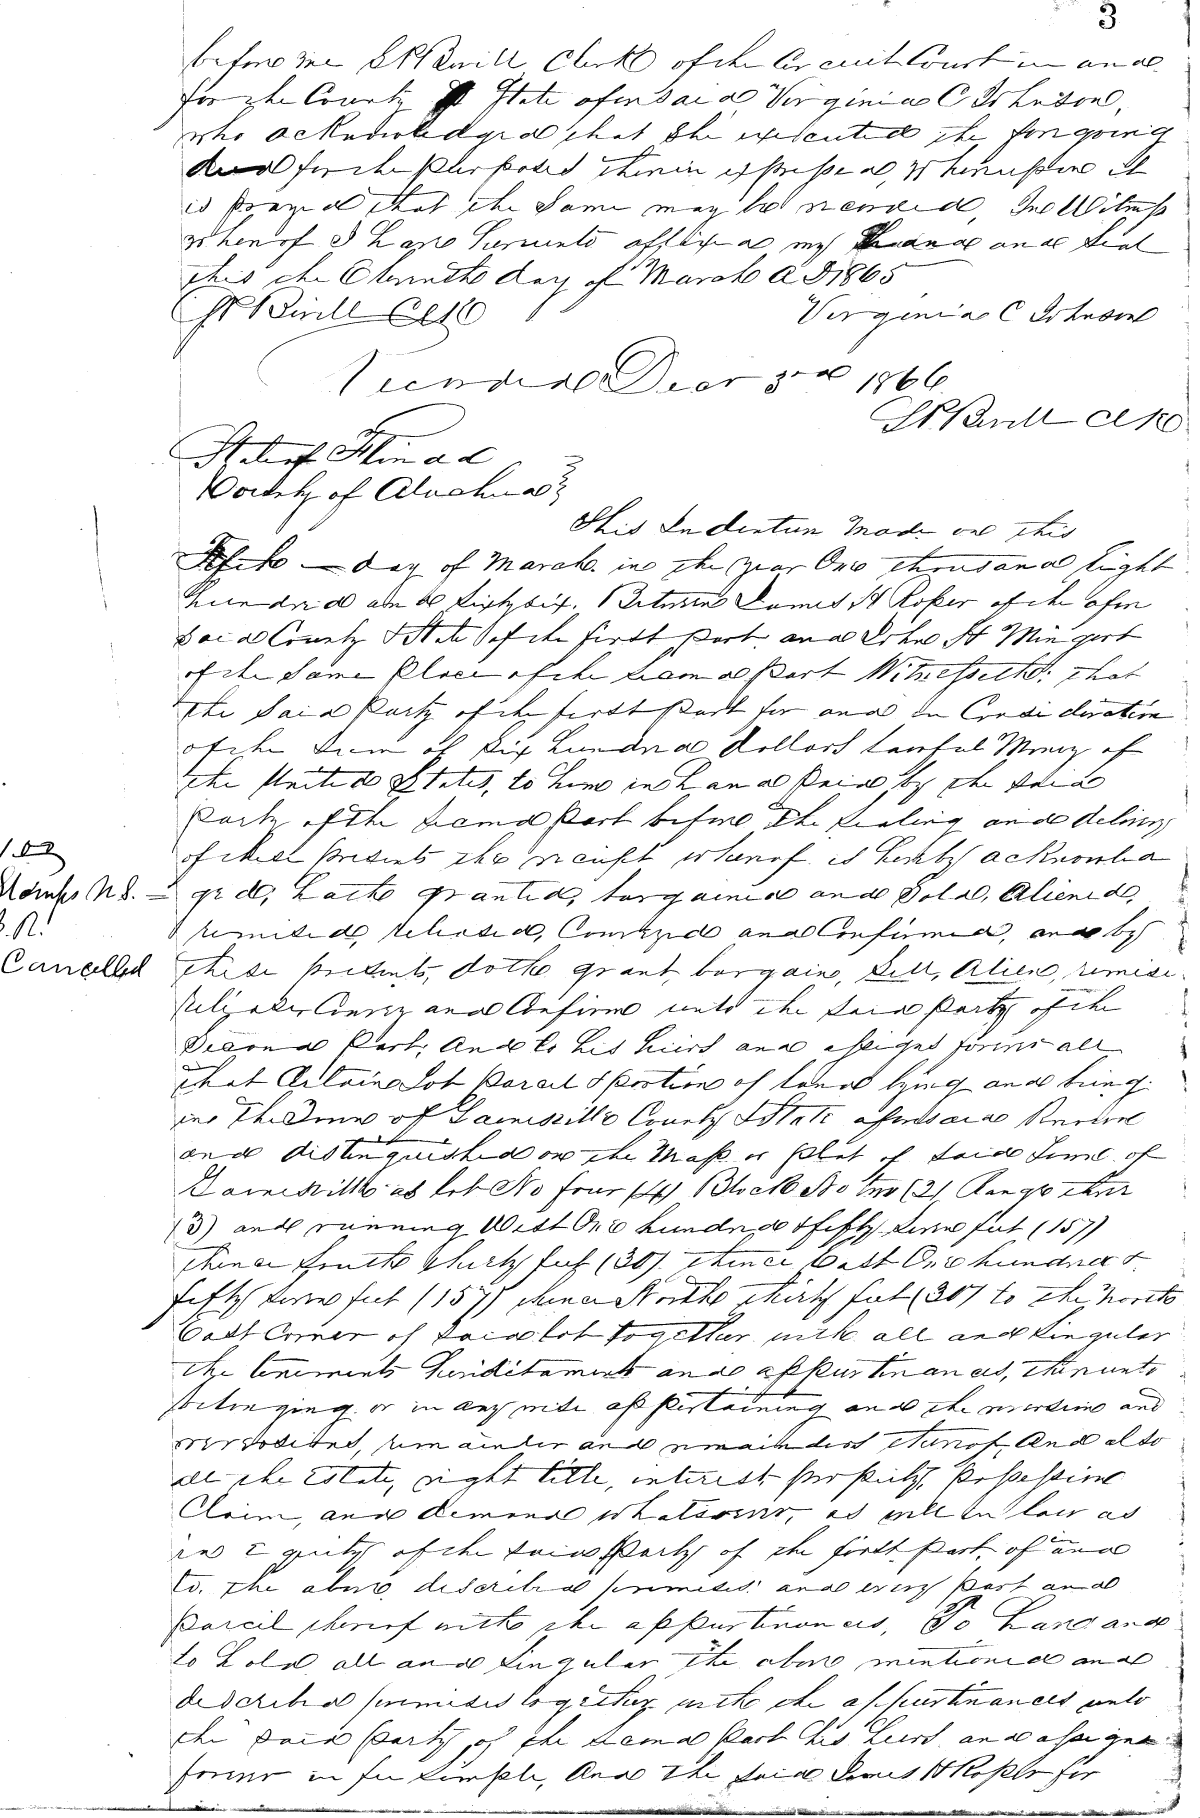 3
before me Clerk of the Circuit Court in and
for the County & State aforesaid Virginia C Johnson,
who acknowledged that she executed the foregoing
deed for the purposes therein expressed, Whereupon it
is prayed that the same may be recorded, In Witness
whereof I have hereunto affixed my hand and seal
this the Eleventh day of March A D 1865
Clk
Virginia C Johnson
Recorded Decr 3rd 1866
Clk
State of Florida
County of Alachua
This Indenture Made on this
Fifth — day of March in the year One thousand Eight
hundred and Sixty six. Between James H Roper of the afore
said County & State of the first part and John H Mingort
of the Same Place of the Second Part Witnesseth: that
the Said Party of the first Part for and in Consideration
of the Sum of Six hundred Dollars lawful Money of
the United States, to him in hand Paid by the said
Party of the Second Part before the sealing and delivery
of these presents the receipt whereof is hereby acknowled
Stamps
ged, hath granted, bargained and Sold, Aliened,
remised, released, Conveyed and Confirmed, and by
Cancelled
these presents, doth grant, bargain, Sell, Alien, remise
release, Convey and Confirm unto the said Party of the
Second Part, And to his heirs and assigns forever all
that Certain Lot Parcel & portion of land lying and being
in The Town of Gainesville County & State aforesaid Known
and distinguished on the Map or plat of said Town of
Gainesville as lot No four (4) Block No two (2) Range three
(3) and running West One hundred & fifty seven feet (157)
thence South thirty feet (30). thence East One hundred &
fifty seven feet (157) thence North thirty feet (30) to the North
East Corner of said lot together with all and singular
the tenements hereditaments and appurtenances, thereunto
belonging or in any wise appertaining and the reversion and
reversions, remainder and remainders thereof, And also
all the Estate, right title, interest property, Possession
Claim, and demand whatsoever, as well in law as
in Equity of the said Party of the first Part, of and
to. the above described premises: and every Part and
Parcel thereof with the appurtenances, To Have and
to hold all and singular the above mentioned and
described premises together with the appurtenances unto
the said Party of the Second Part his heirs and assigns
forever in fee simple, And the said James H Roper for